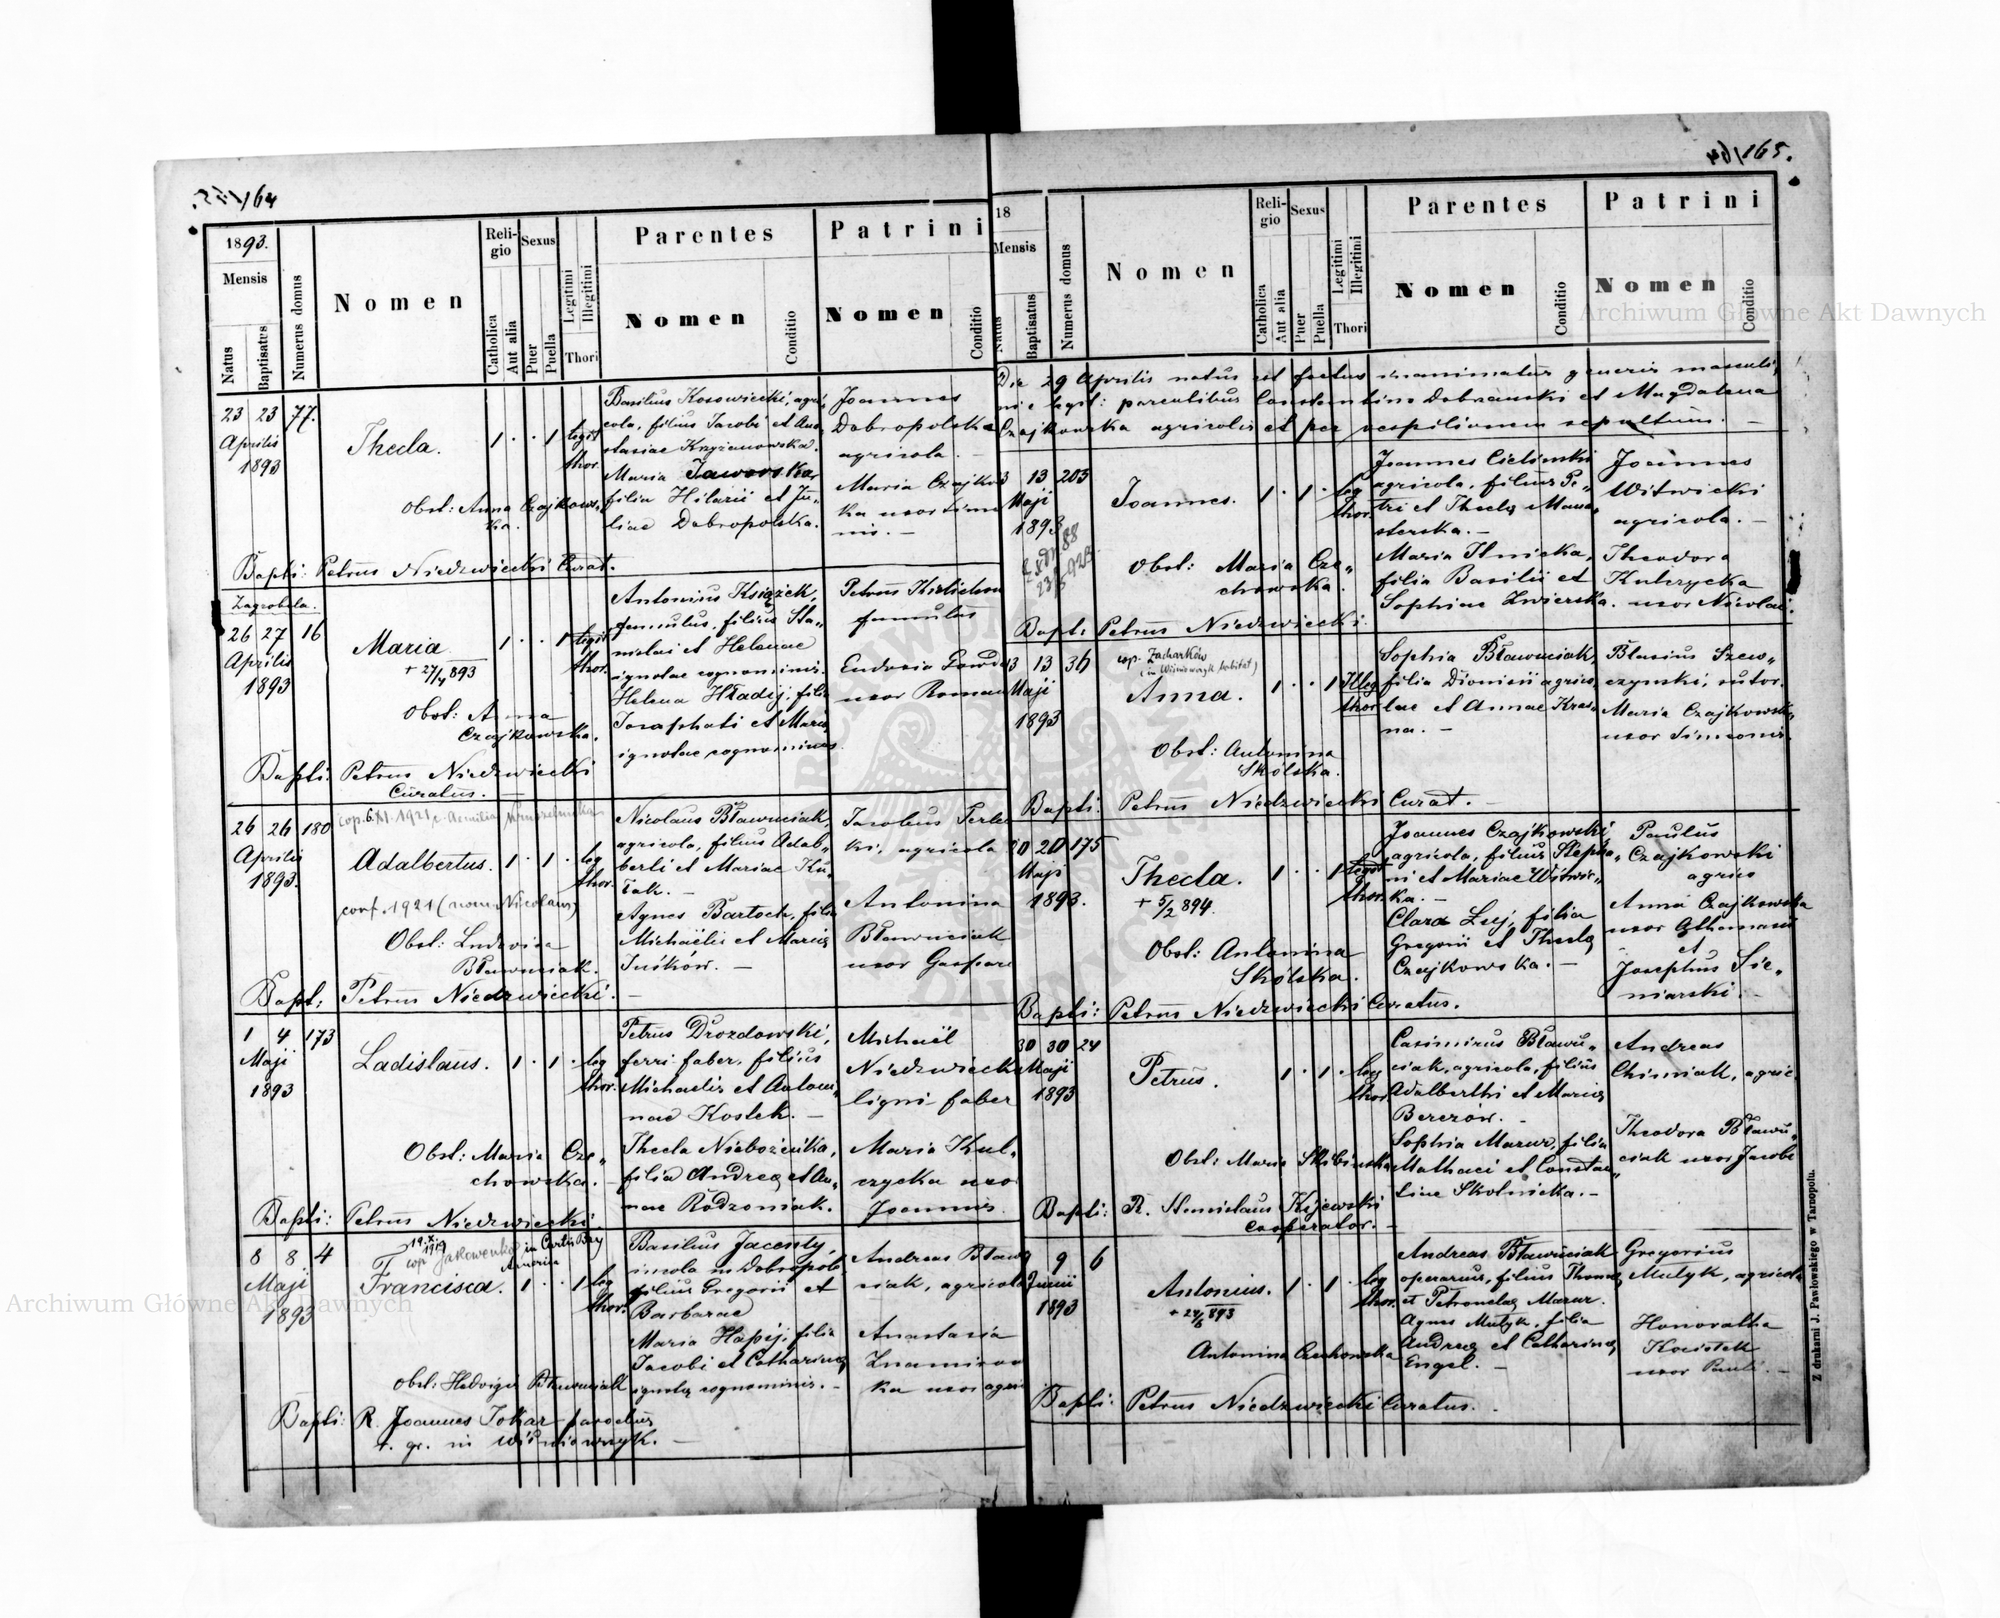 164
1893.
Mensis
Natus
Baptisatus
Numerus domus
Nomen
Reli-
gio
Catholica
Aut alia
Sexus
Puer
Puella
Legitimi
Illegitimi
Thori
Parentes
Nomen
Conditio
Patrini
Nomen
Conditio
23 23 77.
Aprilis
1893
Thecla.
1 · · 1 legit
thor.
Obst: Anna Czajkows-
ka.
Basilius Kosowiecki, agri-
cola, filius Jacobi et Ana-
stasiae Krzyżanowska.
Maria Jaworska
filia Hilarii et Ju-
liae Dobropolska.
Joannes
Dobropolska
agricola.
Maria Czajkows
ka uxor Simeo
nis. —
Bapti: Petrus Niedzwiecki Curat.
Zagrobela.
26 27 16
Aprilis
1893
Maria
+ 27/4 893
1 · · 1 legit
thor.
Obst: Anna
Czajkowska.
Antonius Książek,
famulus, filius Sta-
nislai et Helenae
ignotae cognominis.
Helena Hładij, filia
Josaphati et Mariae
ignotae cognominis
Petrus
famulus
Eudoxia
uxor Romani
Bapti: Petrus Niedzwiecki
Curatus. —
26 26 180
Aprilis
1893.
cop. 6.XI.1921 c. Aemilia
Adalbertus.
1 · 1 · leg
thor.
conf. 1921 (nom. Nicolaus)
Obst: Ludovica
Bławuciak.
Nicolaus Bławuciak,
agricola, filius Adal-
berti et Mariae Ku-
lak. —
Agnes Bartoch, filia
Michaëlis et Mariae
Juśków. —
Jacobus Perlec
ki, agricola
Antonina
Bławuciak
uxor Gaspari
Bapt: Petrus Niedzwiecki. —
1 4 173
Maji
1893
Ladislaus.
1 · 1 · leg
thor.
Obst: Maria Cze-
chowska. —
Petrus Drozdowski,
ferri faber, filius
Michaelis et Antoni-
nae Kostek. —
Thecla Niebożeńka,
filia Andreae et An-
nae Rodzoniak.
Michaël
Niedzwiecki
ligni faber
Maria Kul-
czycka uxor
Joannis
Bapti: Petrus Niedzwiecki.
8 8 4
Maji
1893
19.X.
1919
cop. Jakowenko in Curtis Bay
America
Francisca.
1 · · 1 leg
thor.
Obst: Hedvigis Bławuciak
Basilius Jacenty,
incola in Dobropole,
filius Gregorii et
Barbarae
Maria Hapij, filia
Jacobi et Catharinae
ignotae cognominis. —
Andreas Bławu
ciak, agricola
Anastasia
Znamirow
ka uxor agri
Bapti: R. Joannes Tokar parochus
r. gr. in Wiśniowczyk. —
164/165.
18
Mensis
Natus
Baptisatus
Numerus domus
Nomen
Reli-
gio
Catholica
Aut alia
Sexus
Puer
Puella
Legitimi
Illegitimi
Thori
Parentes
Nomen
Conditio
Patrini
Nomen
Conditio
Die 29 Aprilis natus est foetus inanimatus generis masculi-
ni e legit: parentibus Constantino Dobrzanski et Magdalena
Czajkowska agricolis et per vespilionem sepultum. —
13 13 203
Maji
1893
Joannes.
1 · 1 · leg
thor.
Obst: Maria Cze-
chowska.
Joannes Cielinski
agricola, filius Pe-
tri et Theclae Mona-
sterska. —
Maria Ilnicka,
filia Basilii et
Sophiae Zwierska.
Joannes
Witwicki
agricola. —
Theodora
Kulczycka
uxor Nicolai.
Bapt: Petrus Niedzwiecki.
13 13 36
Maji
1893
cop. Zacharków
(in Wiśniowczyk habitat)
Anna.
1 · · 1 Illeg
thor.
Obst: Antonina
Skólska.
Sophia Bławuciak,
filia Dionisii agrico-
lae et Annae Kras-
na. —
Blasius Szew-
czynski, sutor.
Maria Czajkowska
uxor Simeonis.
Bapti: Petrus Niedzwiecki Curat. —
20 20 175
Maji
1893.
Thecla.
+ 5/2 894.
1 · · 1 legit
thor.
Obst: Antonina
Skólska.
Joannes Czajkowski
agricola, filius Stepha-
ni et Mariae Witwic-
ka. —
Clara Luj, filia
Gregorii et Theclae
Czajkowska. —
Paulus
Czajkowski
agrico
Anna Czajkowska
uxor Athanasii
et
Josephus Sie-
niarski. —
Bapti: Petrus Niedzwiecki Curatus.
30 30 24
Maji
1893
Petrus.
1 · 1 · leg
thor.
Obst: Maria Skibinska
Casimirus Bławu-
ciak, agricola, filius
Adalberthi et Mariae
Berezów. —
Sophia Mazur, filia
Mathaei et Constan-
tiae Skolnicka. —
Andreas
Chimiak, agric.
Theodora Bławu-
ciak uxor Jacobi
Bapti: R. Stanislaus Kijewski
cooperator. —
9 6
Junii
1893
Antonius.
+ 24/6 893
1 · 1 · leg
thor.
Antonina Czechowska
Andreas Bławuciak
operarius, filius Thomae
et Petronelae Mazur.
Agnes Mutyk, filia
Andreae et Catharinae
Engel. —
Gregorius
Mutyk, agricola
Honoratha
uxor Pauli. —
Bapti: Petrus Niedzwiecki Curatus.
Z drukarni J. Pawłowskiego w Tarnopolu.
Archiwum Główne Akt Dawnych
Archiwum Główne Akt Dawnych